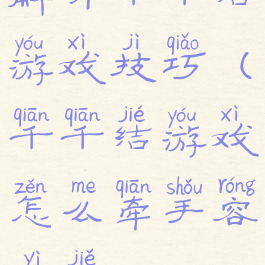 yóu xì jì qiǎo
游戏技巧(
qiān qiān jié yóu xì
千千结游戏
zěn me qiān shǒu róng
怎么牵手容
yì jiě